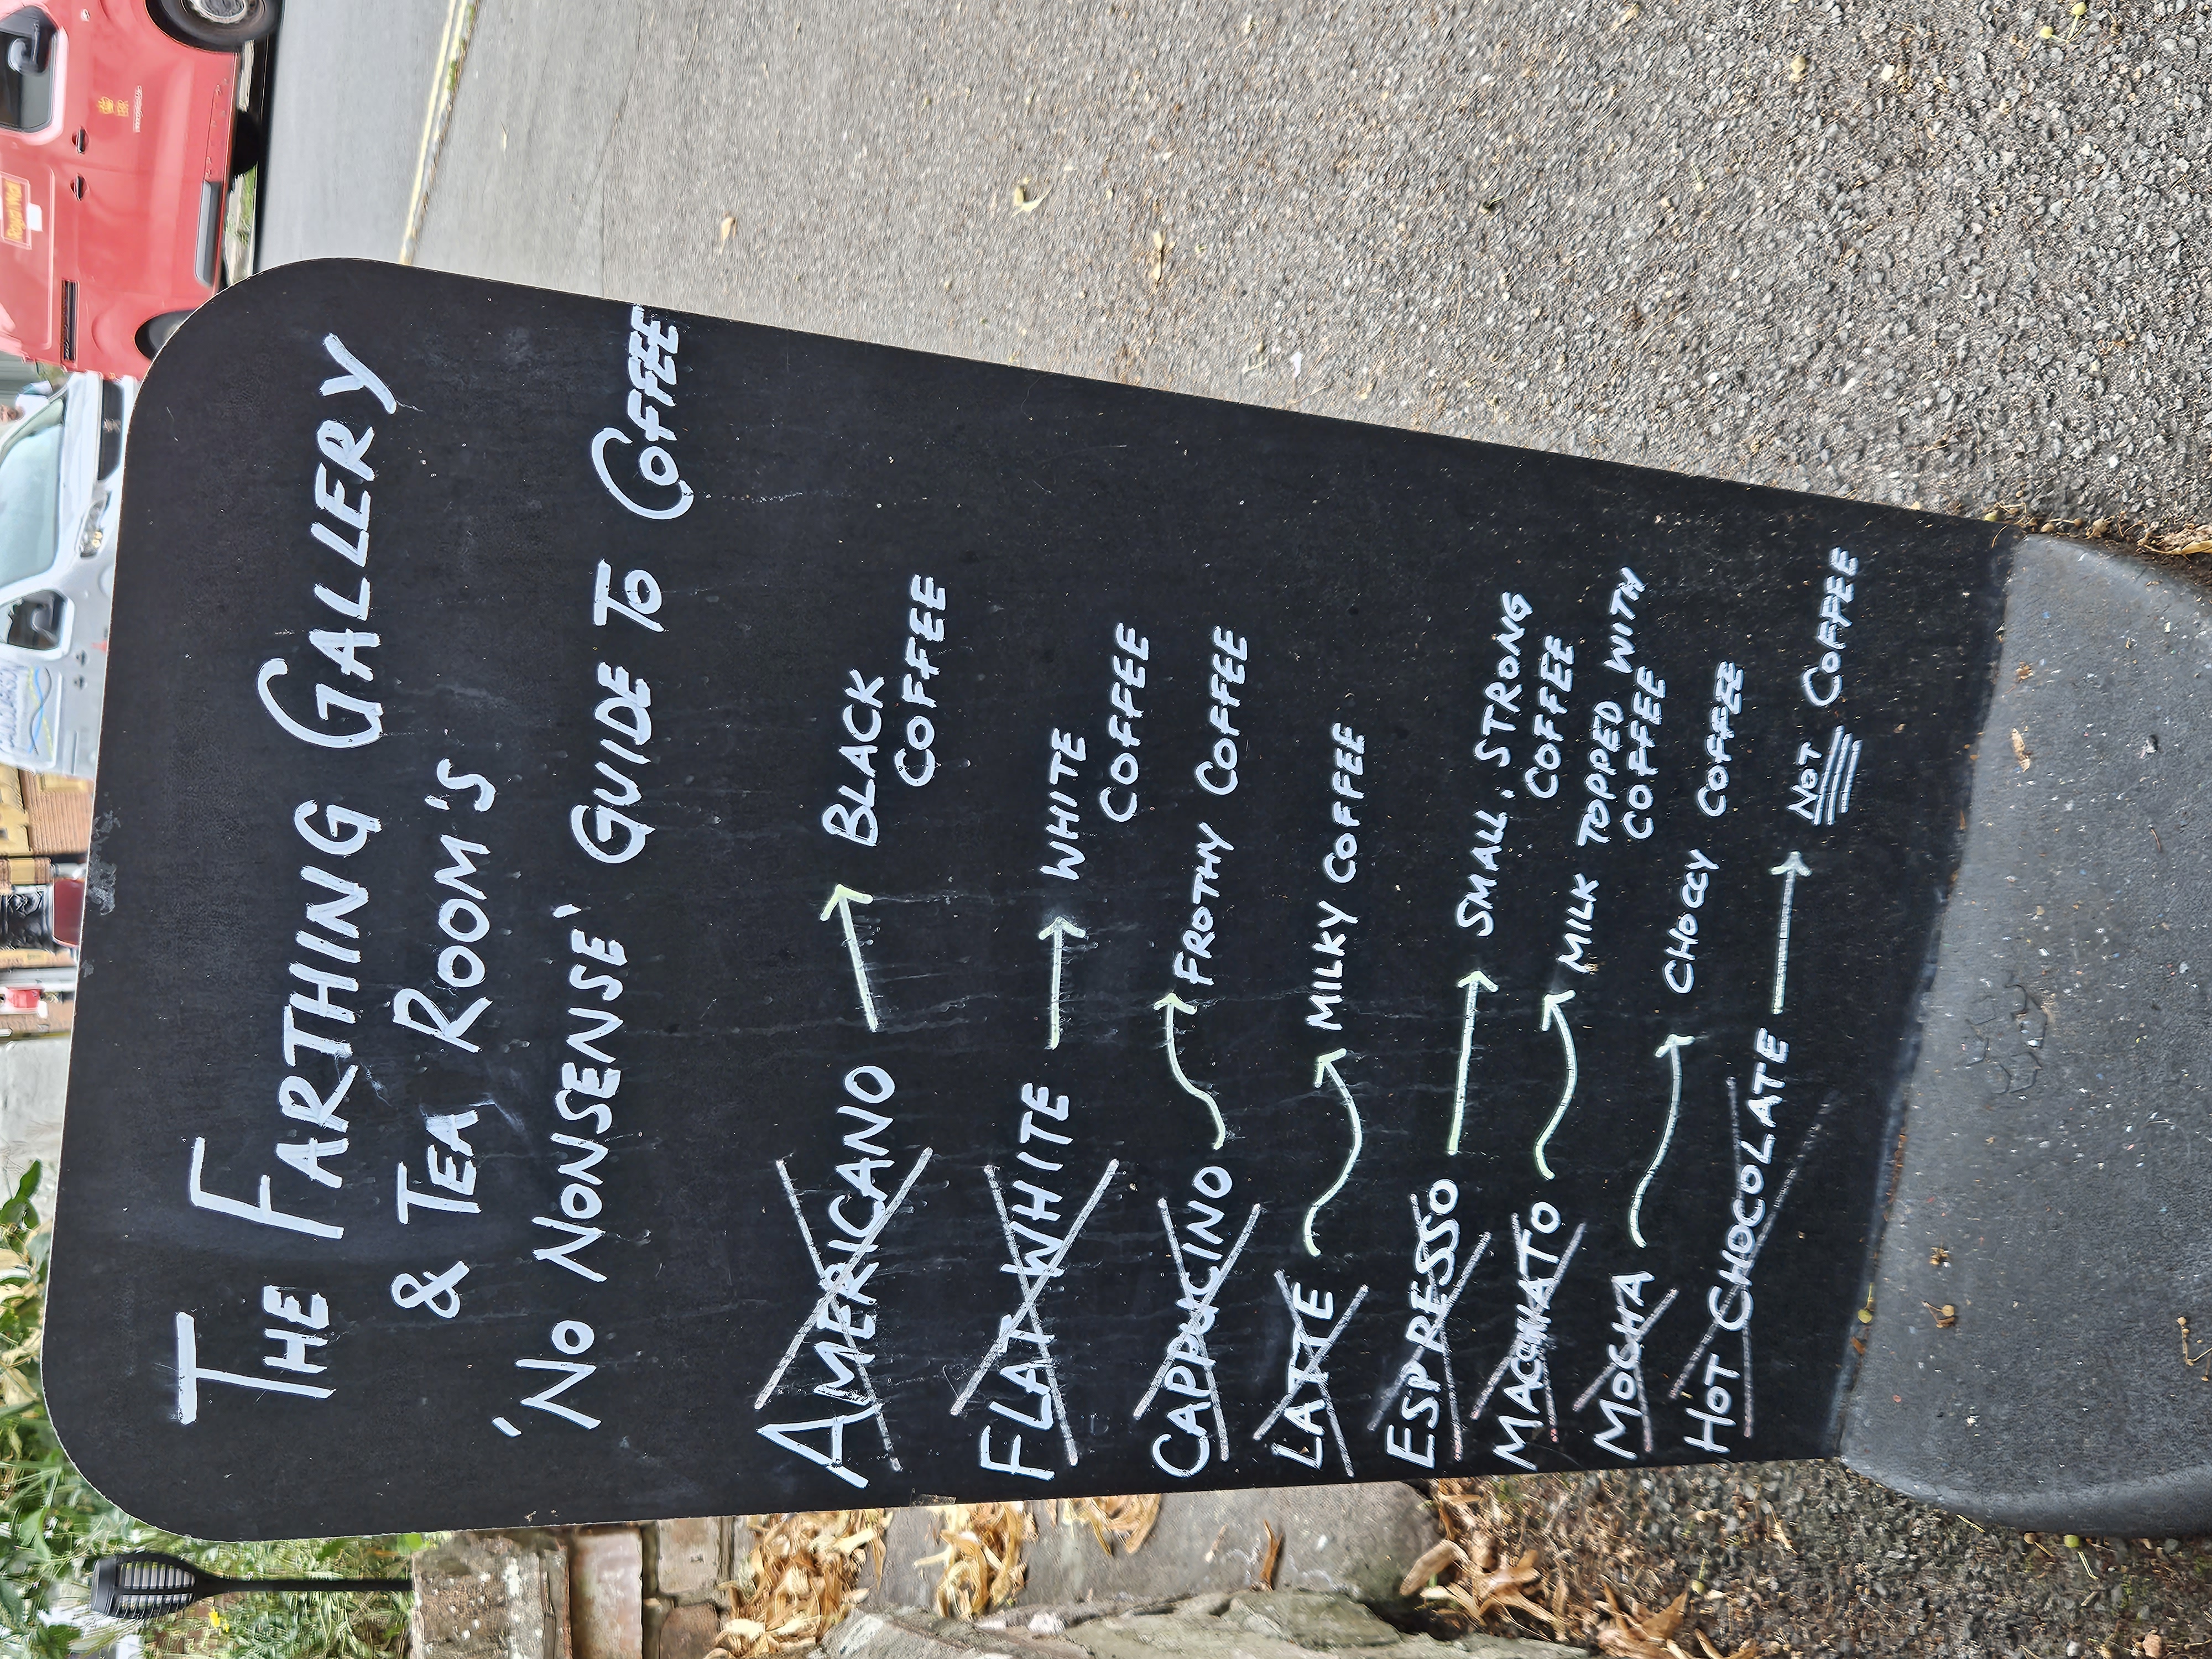 THE FARTHING GALLERY
& TEA ROOM'S
'NO NONSENSE' GUIDE TO COFFEE
AMERICANO → BLACK
COFFEE
FLAT WHITE → WHITE
COFFEE
CAPPUCINO → FROTHY COFFEE
LATTE → MILKY COFFEE
ESPRESSO → SMALL, STRONG
COFFEE
MACCHIATO → MILK TOPPED WITH
COFFEE
MOCHA → CHOCCY COFFEE
HOT CHOCOLATE → NOT COFFEE
Royal Mail